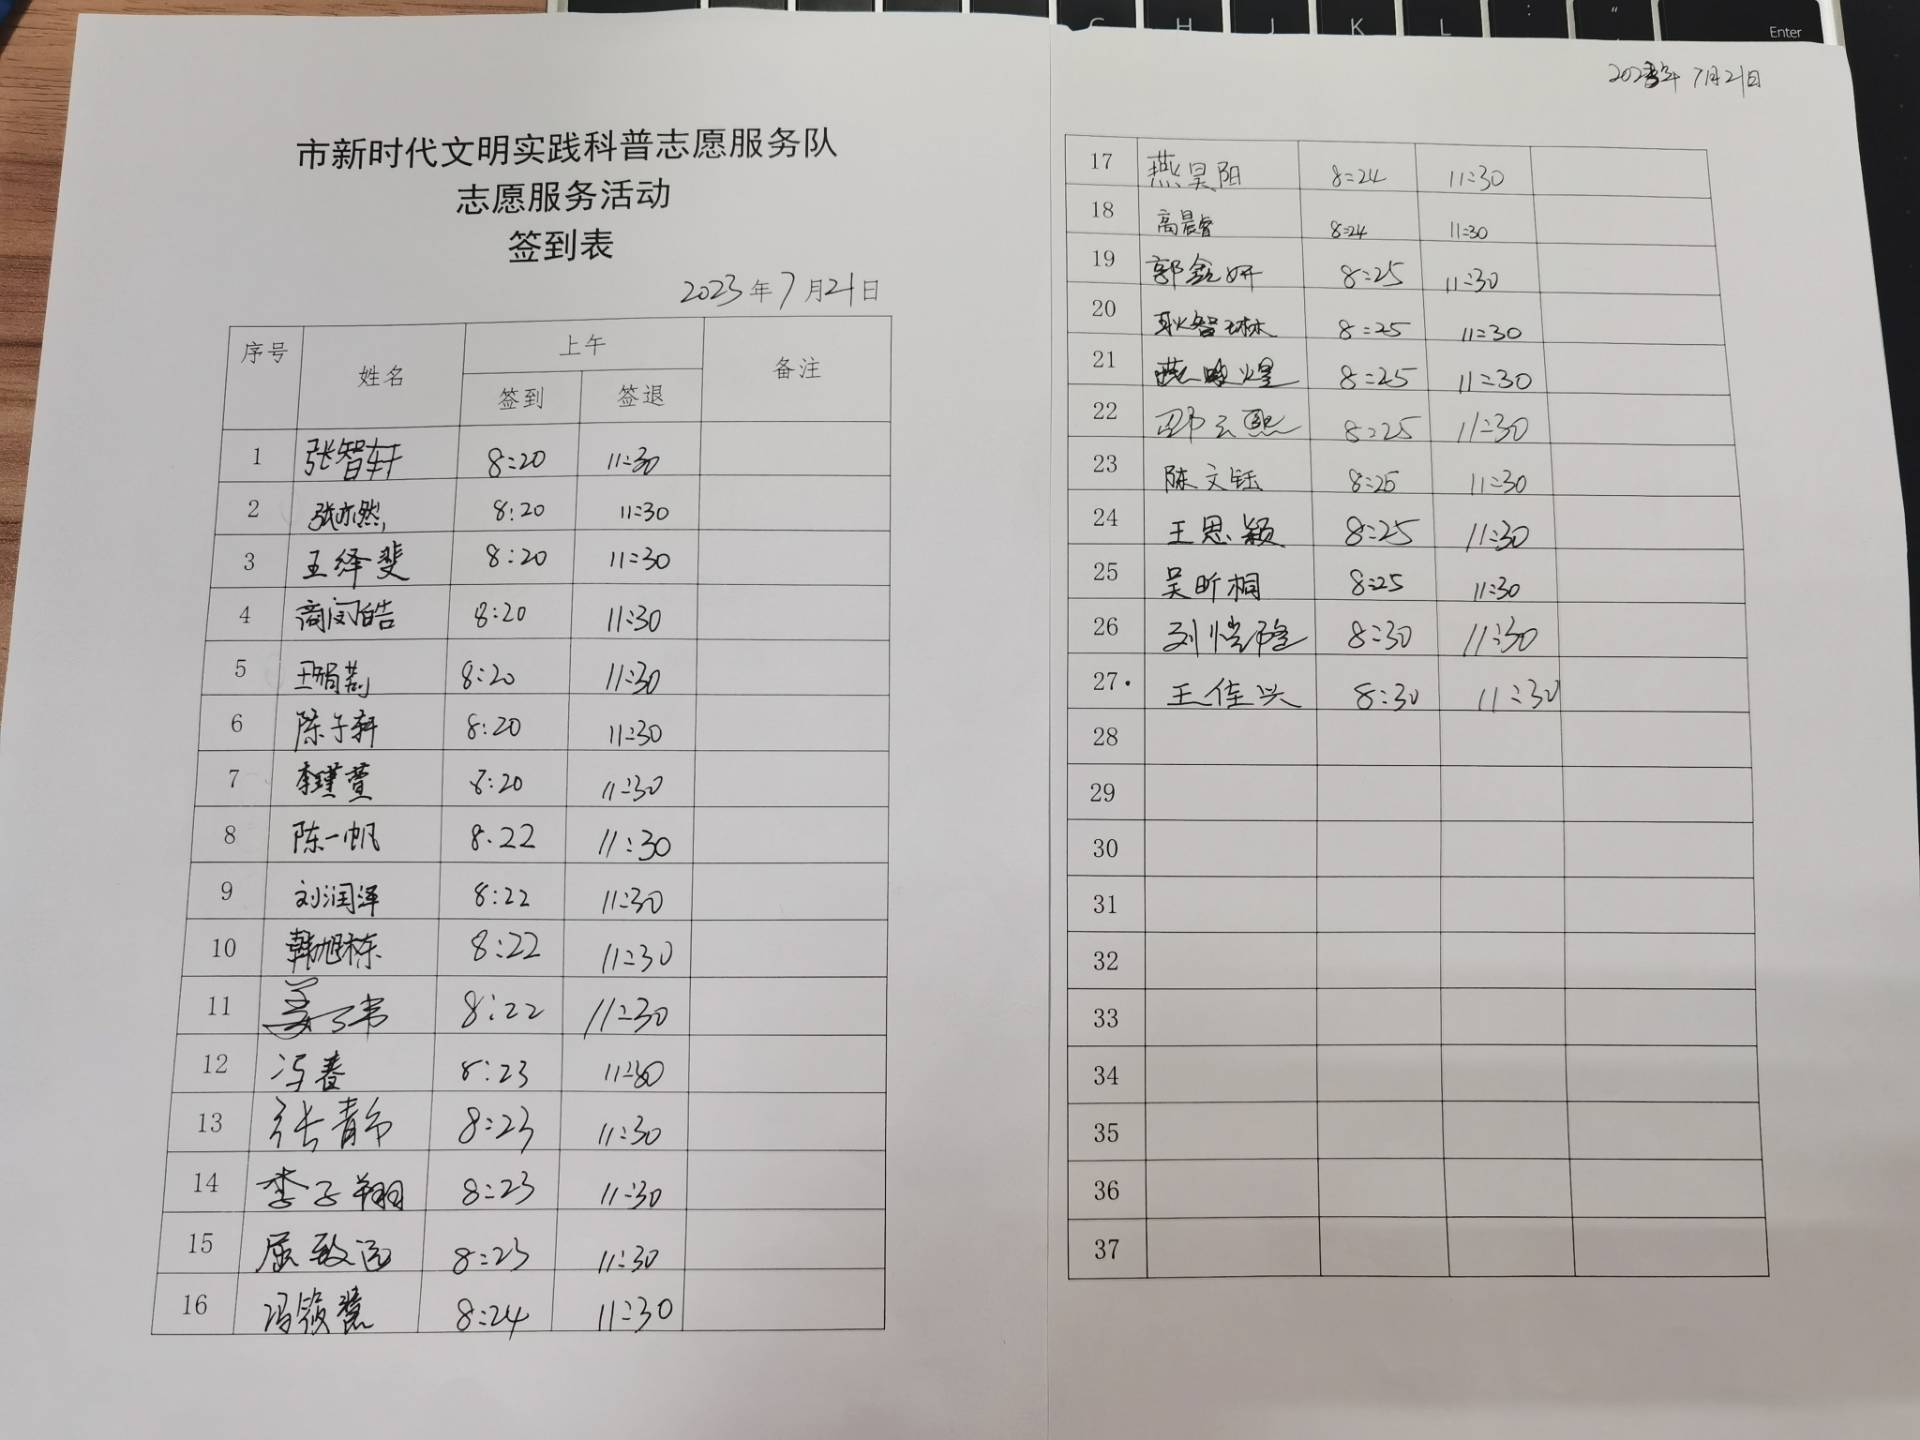 市新时代文明实践科普志愿服务队
志愿服务活动
签到表
2023年7月21日
序号 姓名 上午 备注
签到 签退
1 张智轩 8:20 11:30
2 张亦然 8:20 11:30
3 王绎斐 8:20 11:30
4 商闵皓 8:20 11:30
5 8:20 11:30
6 陈子轩 8:20 11:30
7 李瑾萱 8:20 11:30
8 陈一帆 8:22 11:30
9 刘润泽 8:22 11:30
10 韩旭栋 8:22 11:30
11 8:22 11:30
12 冯春 8:23 11:30
13 张青 8:23 11:30
14 李子翔 8:23 11:30
15 屈致远 8:23 11:30
16 冯筱 8:24 11:30
2023年7月21日
17 燕昊阳 8:24 11:30
18 高晨睿 8:24 11:30
19 郭鑫妍 8:25 11:30
20 耿智琳 8:25 11:30
21 燕 煜 8:25 11:30
22 邵云熙 8:25 11:30
23 陈文钰 8:25 11:30
24 王思颖 8:25 11:30
25 吴昕桐 8:25 11:30
26 刘恺隆 8:30 11:30
27 王佳兴 8:30 11:30
28
29
30
31
32
33
34
35
36
37
G H J K L : " Enter